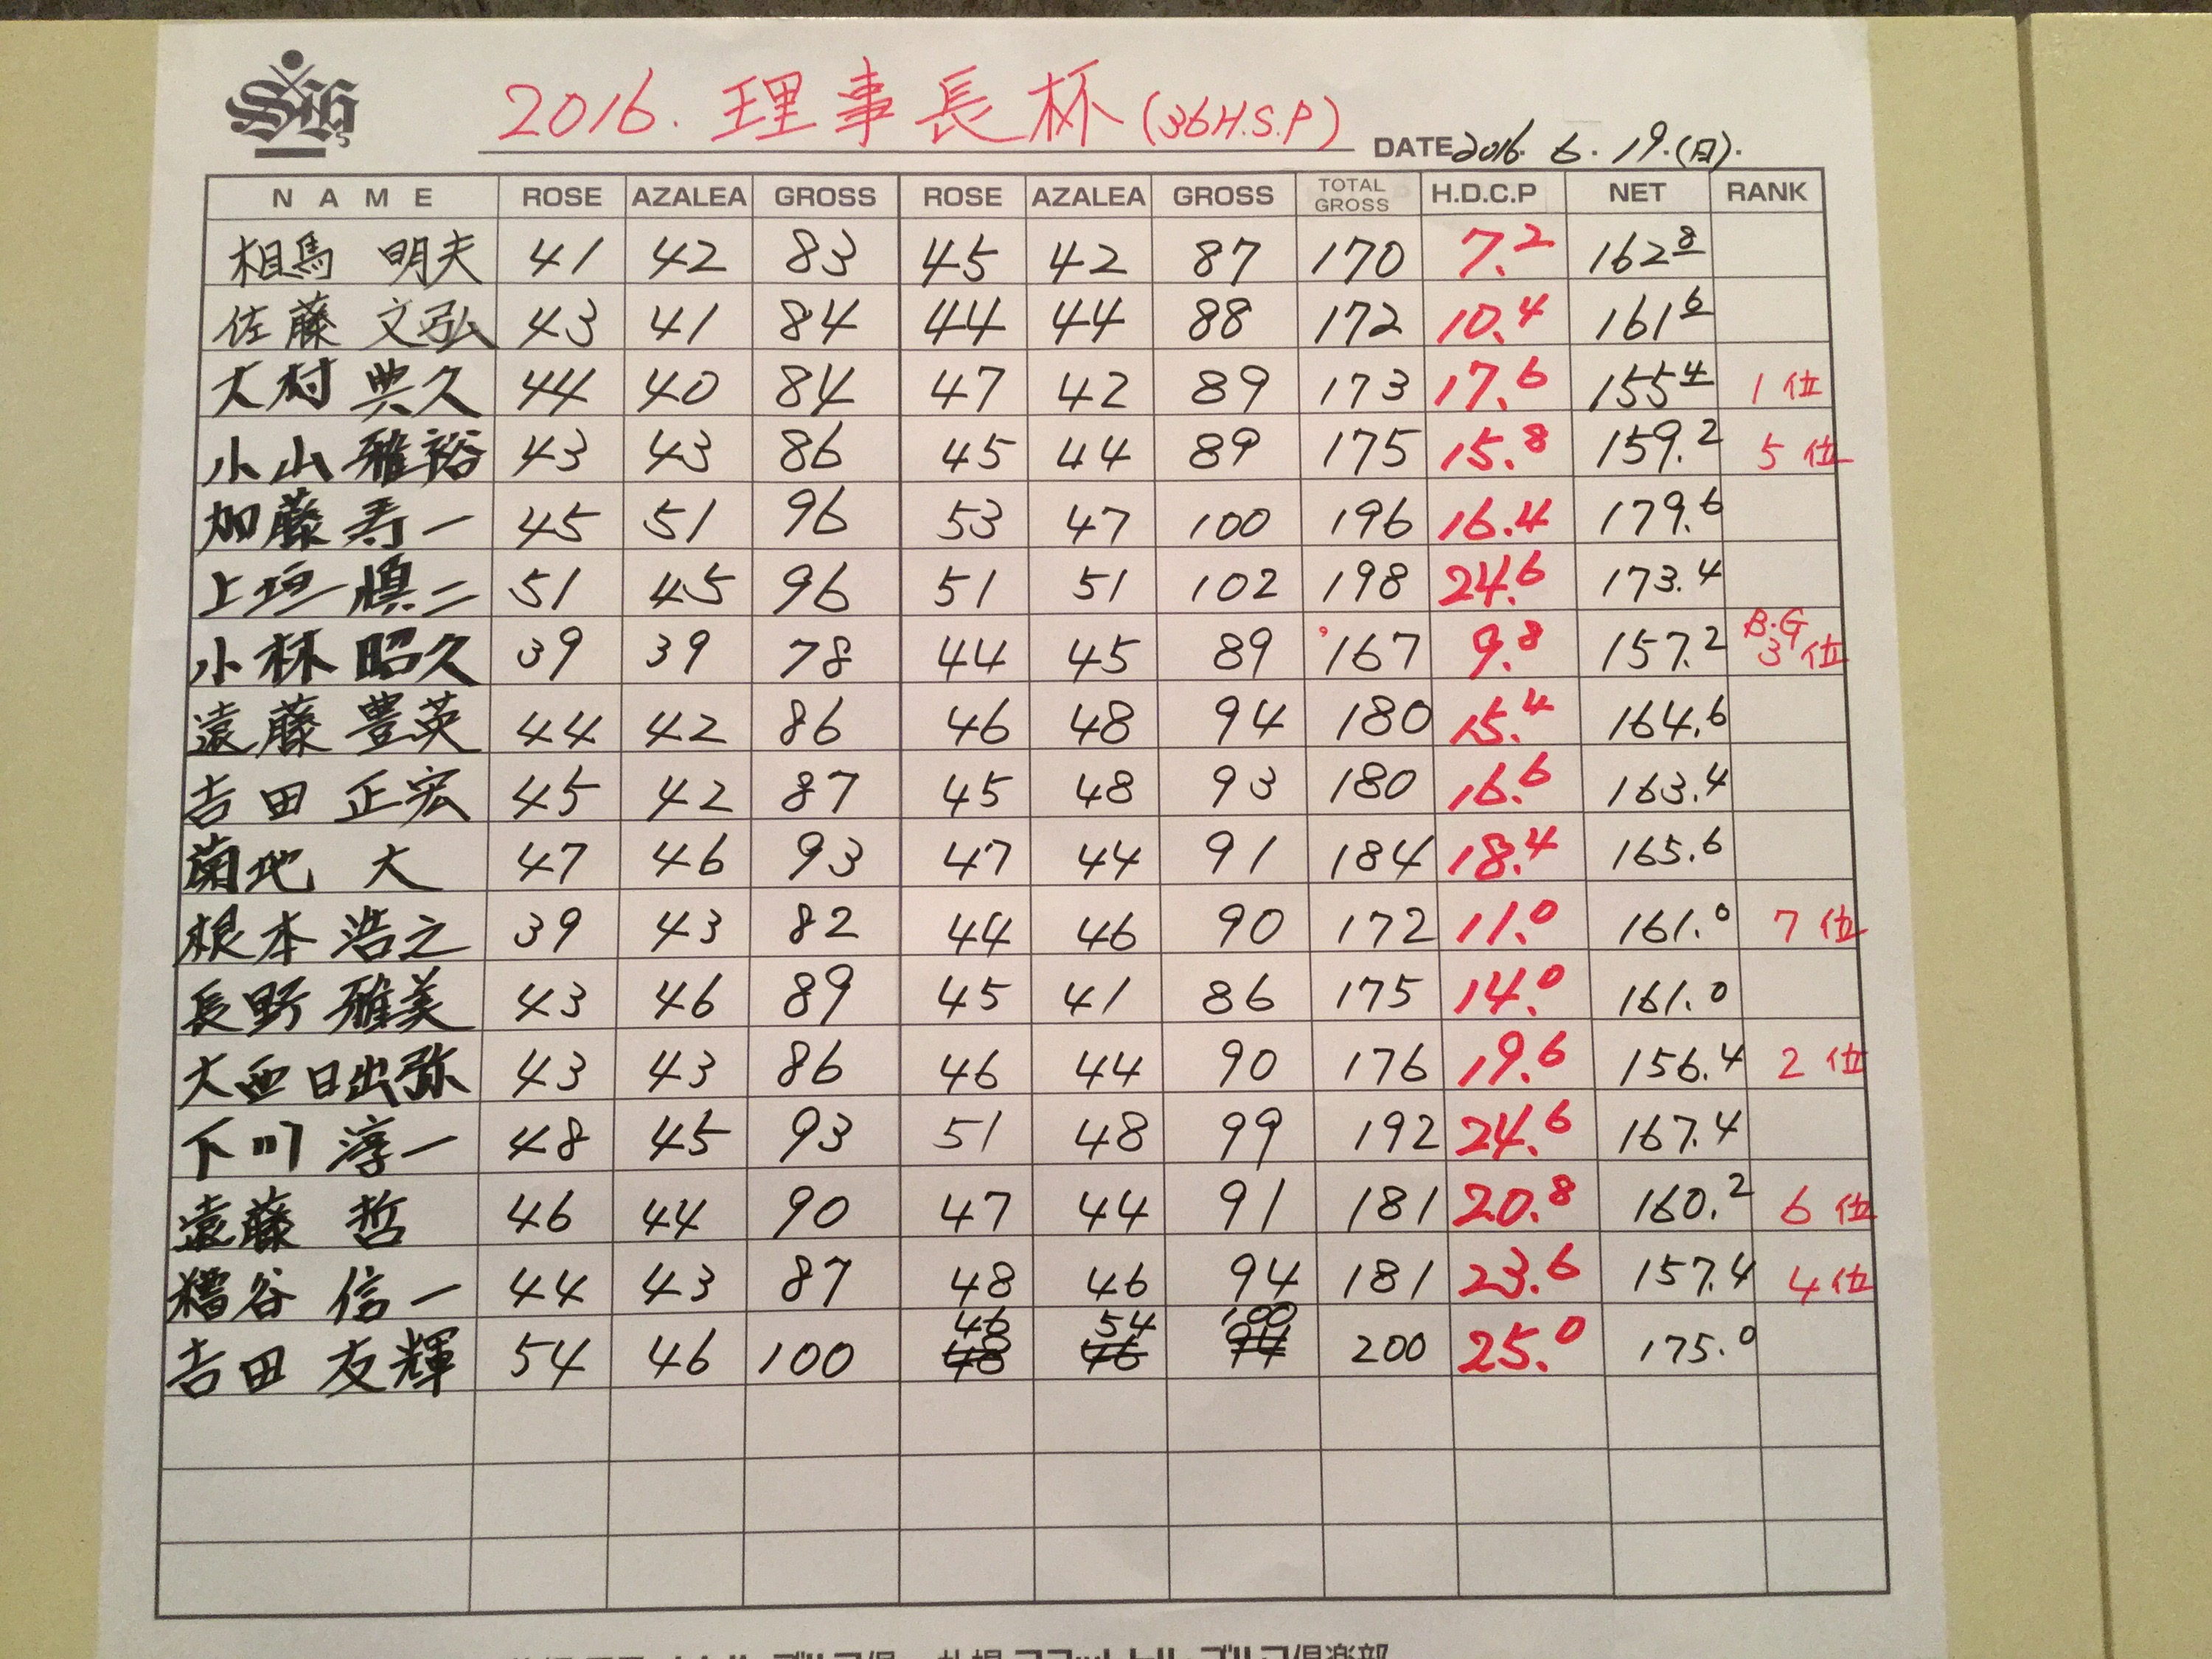 2016. 理事長杯 (36H.S.P)
DATE 2016. 6. 19.(日).
NAME ROSE AZALEA GROSS ROSE AZALEA GROSS TOTAL GROSS H.D.C.P NET RANK
相馬 明夫 41 42 83 45 42 87 170 7.2 162 8
佐藤 文弘 43 41 84 44 44 88 172 10.4 161 6
大村 典久 44 40 84 47 42 89 173 17.6 155 4 1位
小山 雅裕 43 43 86 45 44 89 175 15.8 159.2 5位
加藤 寿一 45 51 96 53 47 100 196 16.4 179.6
上垣 慎二 51 45 96 51 51 102 198 24.6 173.4
小林 昭久 39 39 78 44 45 89 167 9.8 157.2 B.G 3位
遠藤 豊英 44 42 86 46 48 94 180 15.4 164.6
吉田 正宏 45 42 87 45 48 93 180 16.6 163.4
菊地 大 47 46 93 47 44 91 184 18.4 165.6
根本 浩之 39 43 82 44 46 90 172 11.0 161.0 7位
長野 雅美 43 46 89 45 41 86 175 14.0 161.0
大西 日出弥 43 43 86 46 44 90 176 19.6 156.4 2位
下川 淳一 48 45 93 51 48 99 192 24.6 167.4
遠藤 哲 46 44 90 47 44 91 181 20.8 160.2 6位
糟谷 信一 44 43 87 48 46 94 181 23.6 157.4 4位
吉田 友輝 54 46 100 46 54 100 200 25.0 175.0